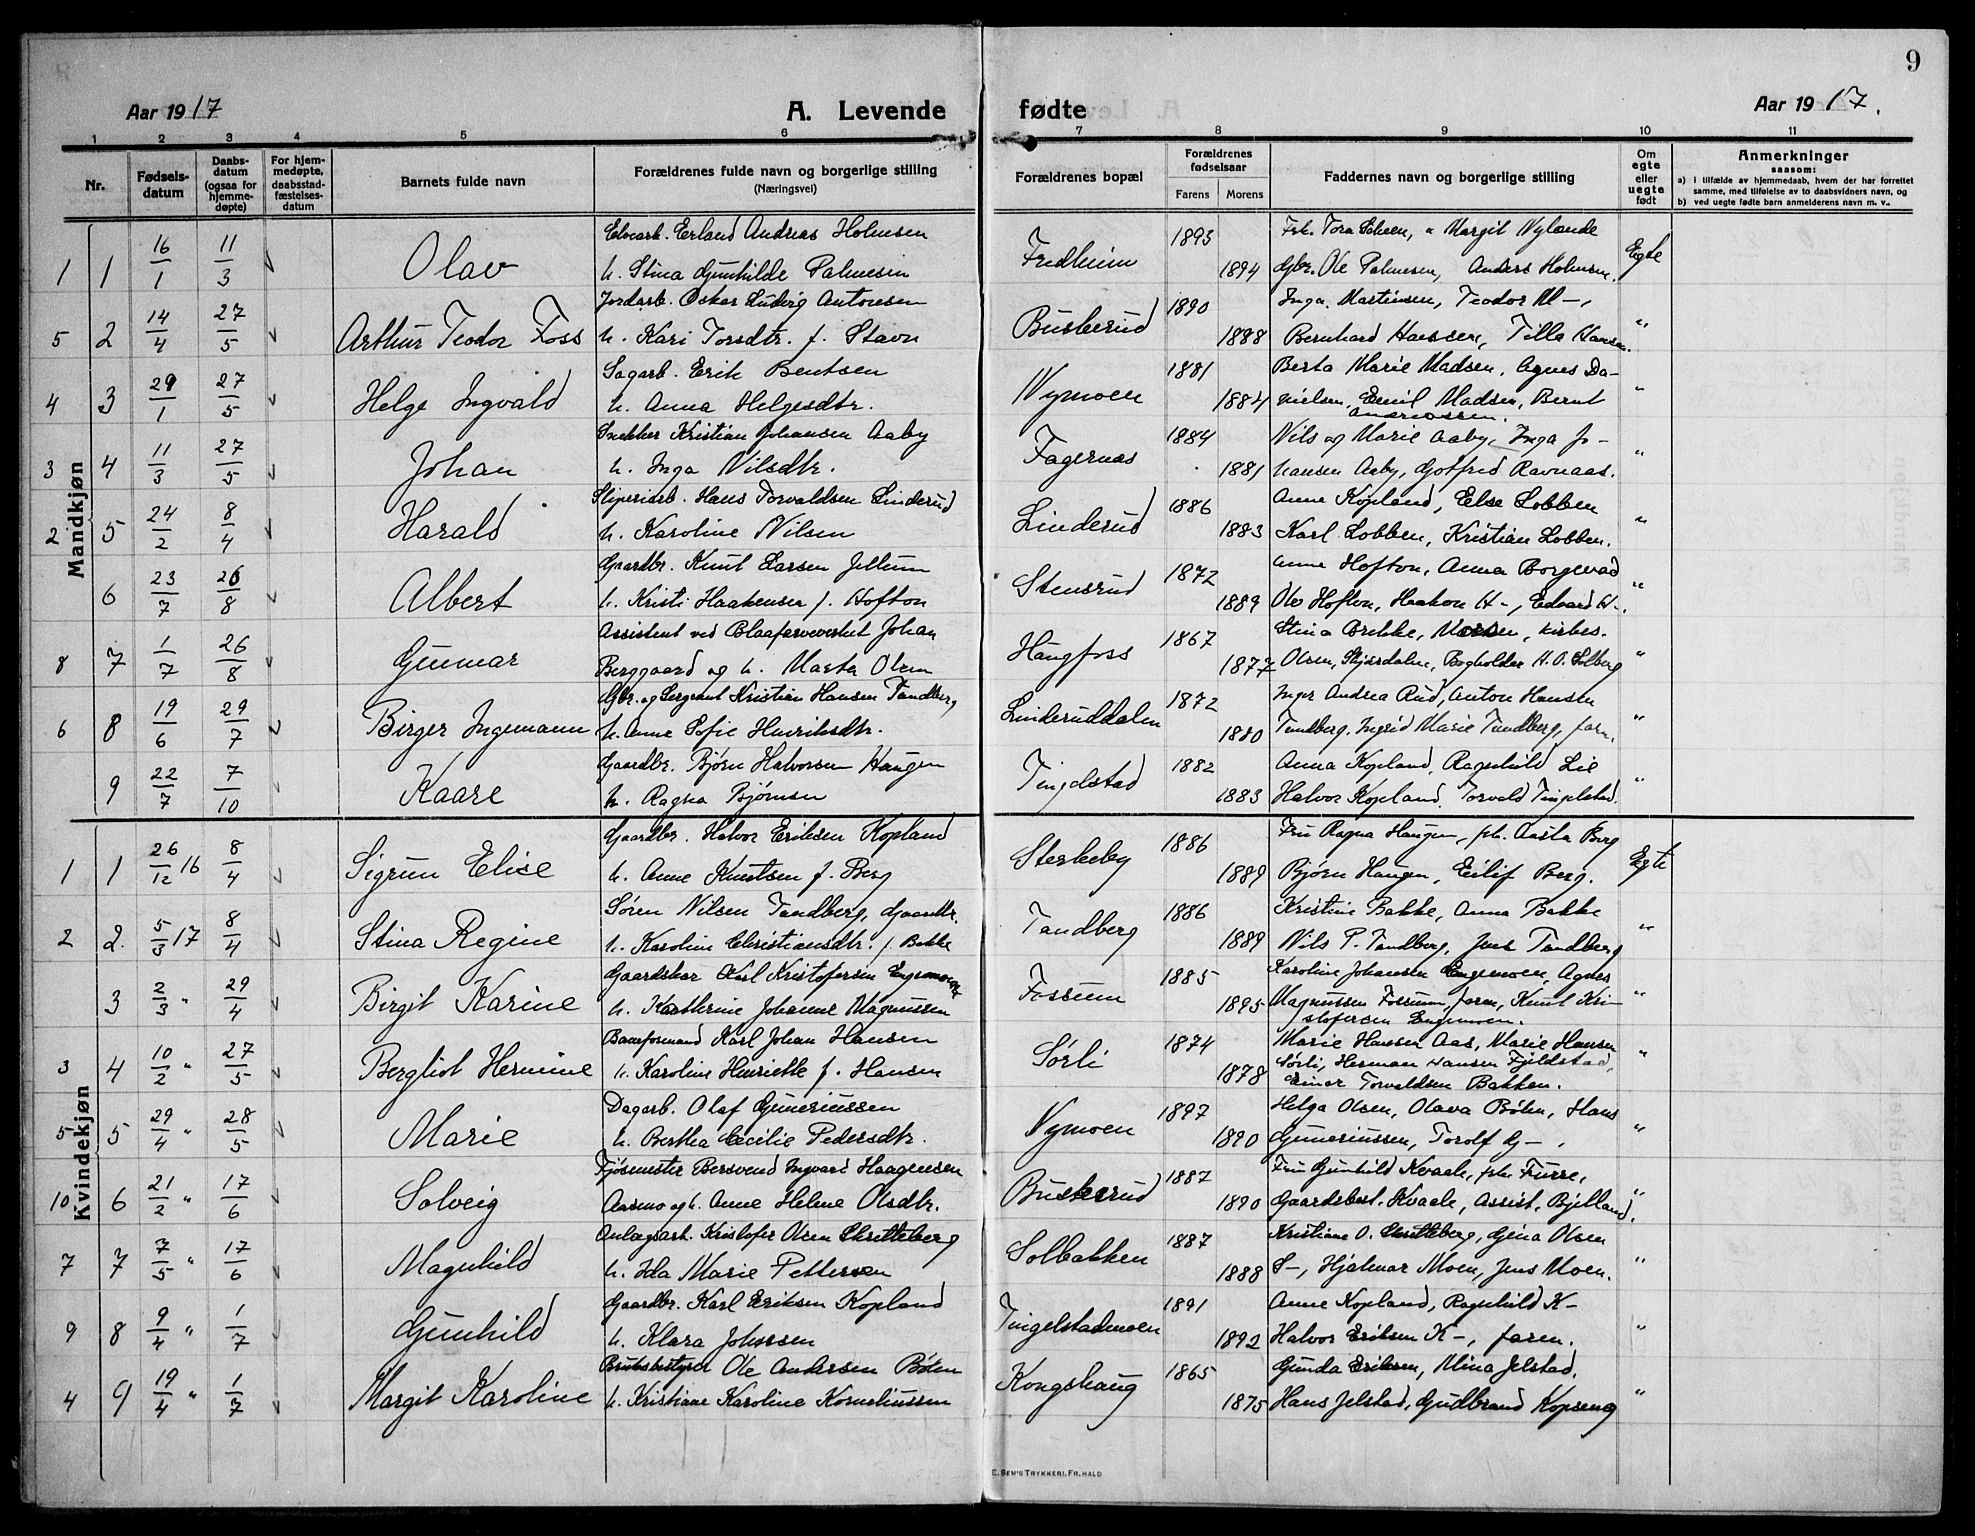 9
Aar 1917
A. Levende fødte
Aar 1917.
1 2 3 4 5 6 7 8 9 10 11
Nr.
Fødsels-datum
Daabs-datum (ogsaa for hjemme-døpte)
For hjem-medøpte, daabsstad-fæstelses-datum
Barnets fulde navn
Forældrenes fulde navn og borgerlige stilling
(Næringsvei)
Forældrenes bopæl
Forældrenes fødselsaar
Farens Morens
Faddernes navn og borgerlige stilling
Om egte eller uegte født
Anmerkninger
saasom:
a) i tilfælde av hjemmedaab, hvem der har forrettet
samme, med tilføielse av to daabsvidners navn, og
b) ved uegte født barn anmelderens navn m. v..
Mandkjøn
Erland Andreas Holmsen 1893 Frk. Tora Scheen, " Margit Nylande
1 1 16/1 11/3 Olav h. Stina Gunhilde Palmesen Fredheim 1894 Gbr. Ole Palmesen, Anders Holmsen. Egte
Jordarb. Oskar Ludvig Antonsen 1890 Inga Martinsen, Teodor M-,
5 2 14/4 27/5 Arthur Teodor Foss h. Kari Torsdtr. f. Stavn Buskerud 1898 Bernhard Hansen, Tilla Hansen. "
Sagarb. Erik Bentsen 1881 Berta Marie Madsen, Agnes Da-
4 3 29/1 27/5 Helge Ingvald h. Anna Helgesdtr. Nymoen 1884 nielsen, Emil Madsen, Bernt "
Snekker Kristian Johansen Aaby 1884 Nils og Marie Aaby, Inga Jo-
3 4 11/3 27/5 Johan h. Inga Nilsdtr. Fagernas 1881 hansen Aaby, Gotfred Ravnaas. "
Sliperiarb. Hans Torvaldsen Linderud 1886 Anne Kopland, Else Lobben
2 5 24/2 8/4 Harald h. Karoline Nilsen Linderud 1883 Karl Lobben, Kristian Lobben. "
Gaardbr. Knut Larsen Jellum 1872 Anne Hofton, Anna Borgevad
6 23/7 26/8 Albert h. Kristi Haakensen f. Hofton Stensrud 1889 Olev Hofton, Haakon H-, Edvard H-. "
Assistent ved Blaafarveverket Johan 1867 Stina Brekke,
8 7 1/7 26/8 Gunnar Berggaard og h. Marta Olsen Haugfoss 1877 Olsen, Skjærdalen, Bogholder H. O. Solberg "
Gbr. og Sergeant Kristian Hansen Tandberg 1872 Inger Andrea Rud, Anton Hansen
6 8 19/6 29/7 Birger Ingemann h. Anne Sofie Henriksdtr. Linderuddalen 1880 Tandberg, Ingrid Marie Tandberg, faren. "
Gaardbr. Bjørn Halvorsen Haugen 1882 Anna Kopland, Ragnhild Lie
9 22/7 7/10 Kaare h. Ragna Bjørnsen Tingelstad 1883 Halvor Kopland, Torvald Tingelstad. "
Kvindekjøn
Gaardbr. Halvor Eriksen Kopland 1886 Fru Ragna Haugen, frk. Aasta Berg
1 1 26/12 16 8/4 Sigrun Elise h. Anne Knutsen f. Berg Sterkeby 1889 Bjørn Haugen, Eilif Berg. Egte
Søren Nilsen Tandberg, Gaardbr. 1886 Kristine Bakke, Anna Bakke
2 2. 5/3 17 8/4 Stina Regine h. Karoline Christiansdtr. f. Bakke Tandberg 1889 Nils P. Tandberg, Jens Tandberg "
Karl Kristofersen Engemoen 1885 Karoline Johansen Engemoen, Agnes
3 2/3 " 29/4 Birgit Karine h. Kathrine Johanne Magnussen Fossum 1895 Magnussen Fossum, faren, Knut Kri- "
stofersen Engemoen.
Baneformand Karl Johan Hansen 1874 Marie Hansen Aas, Marie Hansen
3 4 10/2 " 27/5 Bergliot Hermine h. Karoline Henriette f. Hansen Sørli 1878 Sørli, Herman Hansen Fjeldstad, "
Einar Torvaldsen Bakken.
Dagarb. Olaf Guneriussen 1897 Helga Olsen, Olava Bøhn, Hans
5 5 29/4 " 28/5 Marie h. Bertha Cecilie Pedersdtr. Nymoen 1890 Guneriussen, Torolf G-, "
Fjøsmester Bersvend Ingvard Haagensen 1887 Fru Gunhild Kvaale, frk. Furre,
10 6 21/2 " 17/6 Solveig Aasmo og h. Anne Helene Olsdtr. Buskerud 1890 Gaardsbest. Kvaale, Assist. Bjelland. "
Anlægsarb. Kristofer Olsen Skretteberg 1887 Kristiane O. Skretteberg, Gina Olsen
7 7 7/5 " 17/6 Magnhild h. Ida Marie Pettersen Solbakken 1888 S-, Hjalmar Moen, Jens Moen. "
Gaardbr. Karl Eriksen Kopland 1891 Anne Kopland, Ragnhild K-
9 8 9/4 " 1/7 Gunhild h. Klara Johnsen Tingelstadmoen 1892 Halvor Eriksen K-, faren. "
Bruksbestyrer Ole Andersen Bøhn 1865 Gunda Eriksen, Mina Jelstad,
4 9 19/4 " 1/7 Margit Karoline h. Kristiane Karoline Korneliussen Kongshaug 1875 Hans Jelstad, Gudbrand Kopseng "
E. SEM'S TRYKKERI, FR.HALD